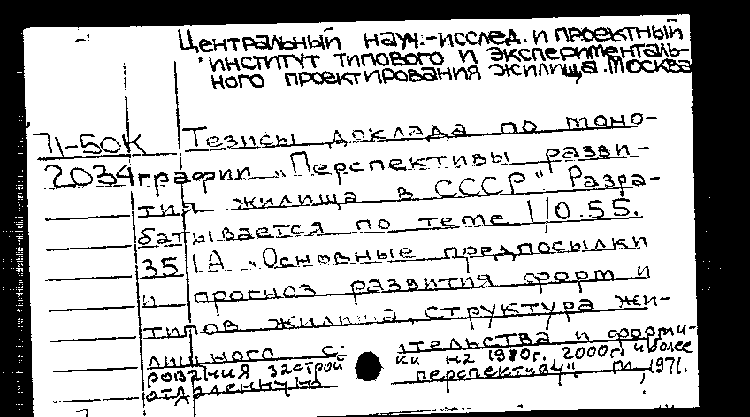 Центральный науч.-исслед. и проектный
институт типового и эксперименталь-
ного проектирования жилища. Москва
71-50К Тезисы доклада по моно-
2034 графии „Перспективы разви-
тия жилища в СССР". Разра-
батывается по теме 1/0.55.
35 1А „Основные предпосылки
и прогноз развития форм и
типов жилища, структура жи-
лищного с. тельства и форми-
рования застрой ки на 1980г. 2000г. и более
отдаленную перспективу". М., 1971.